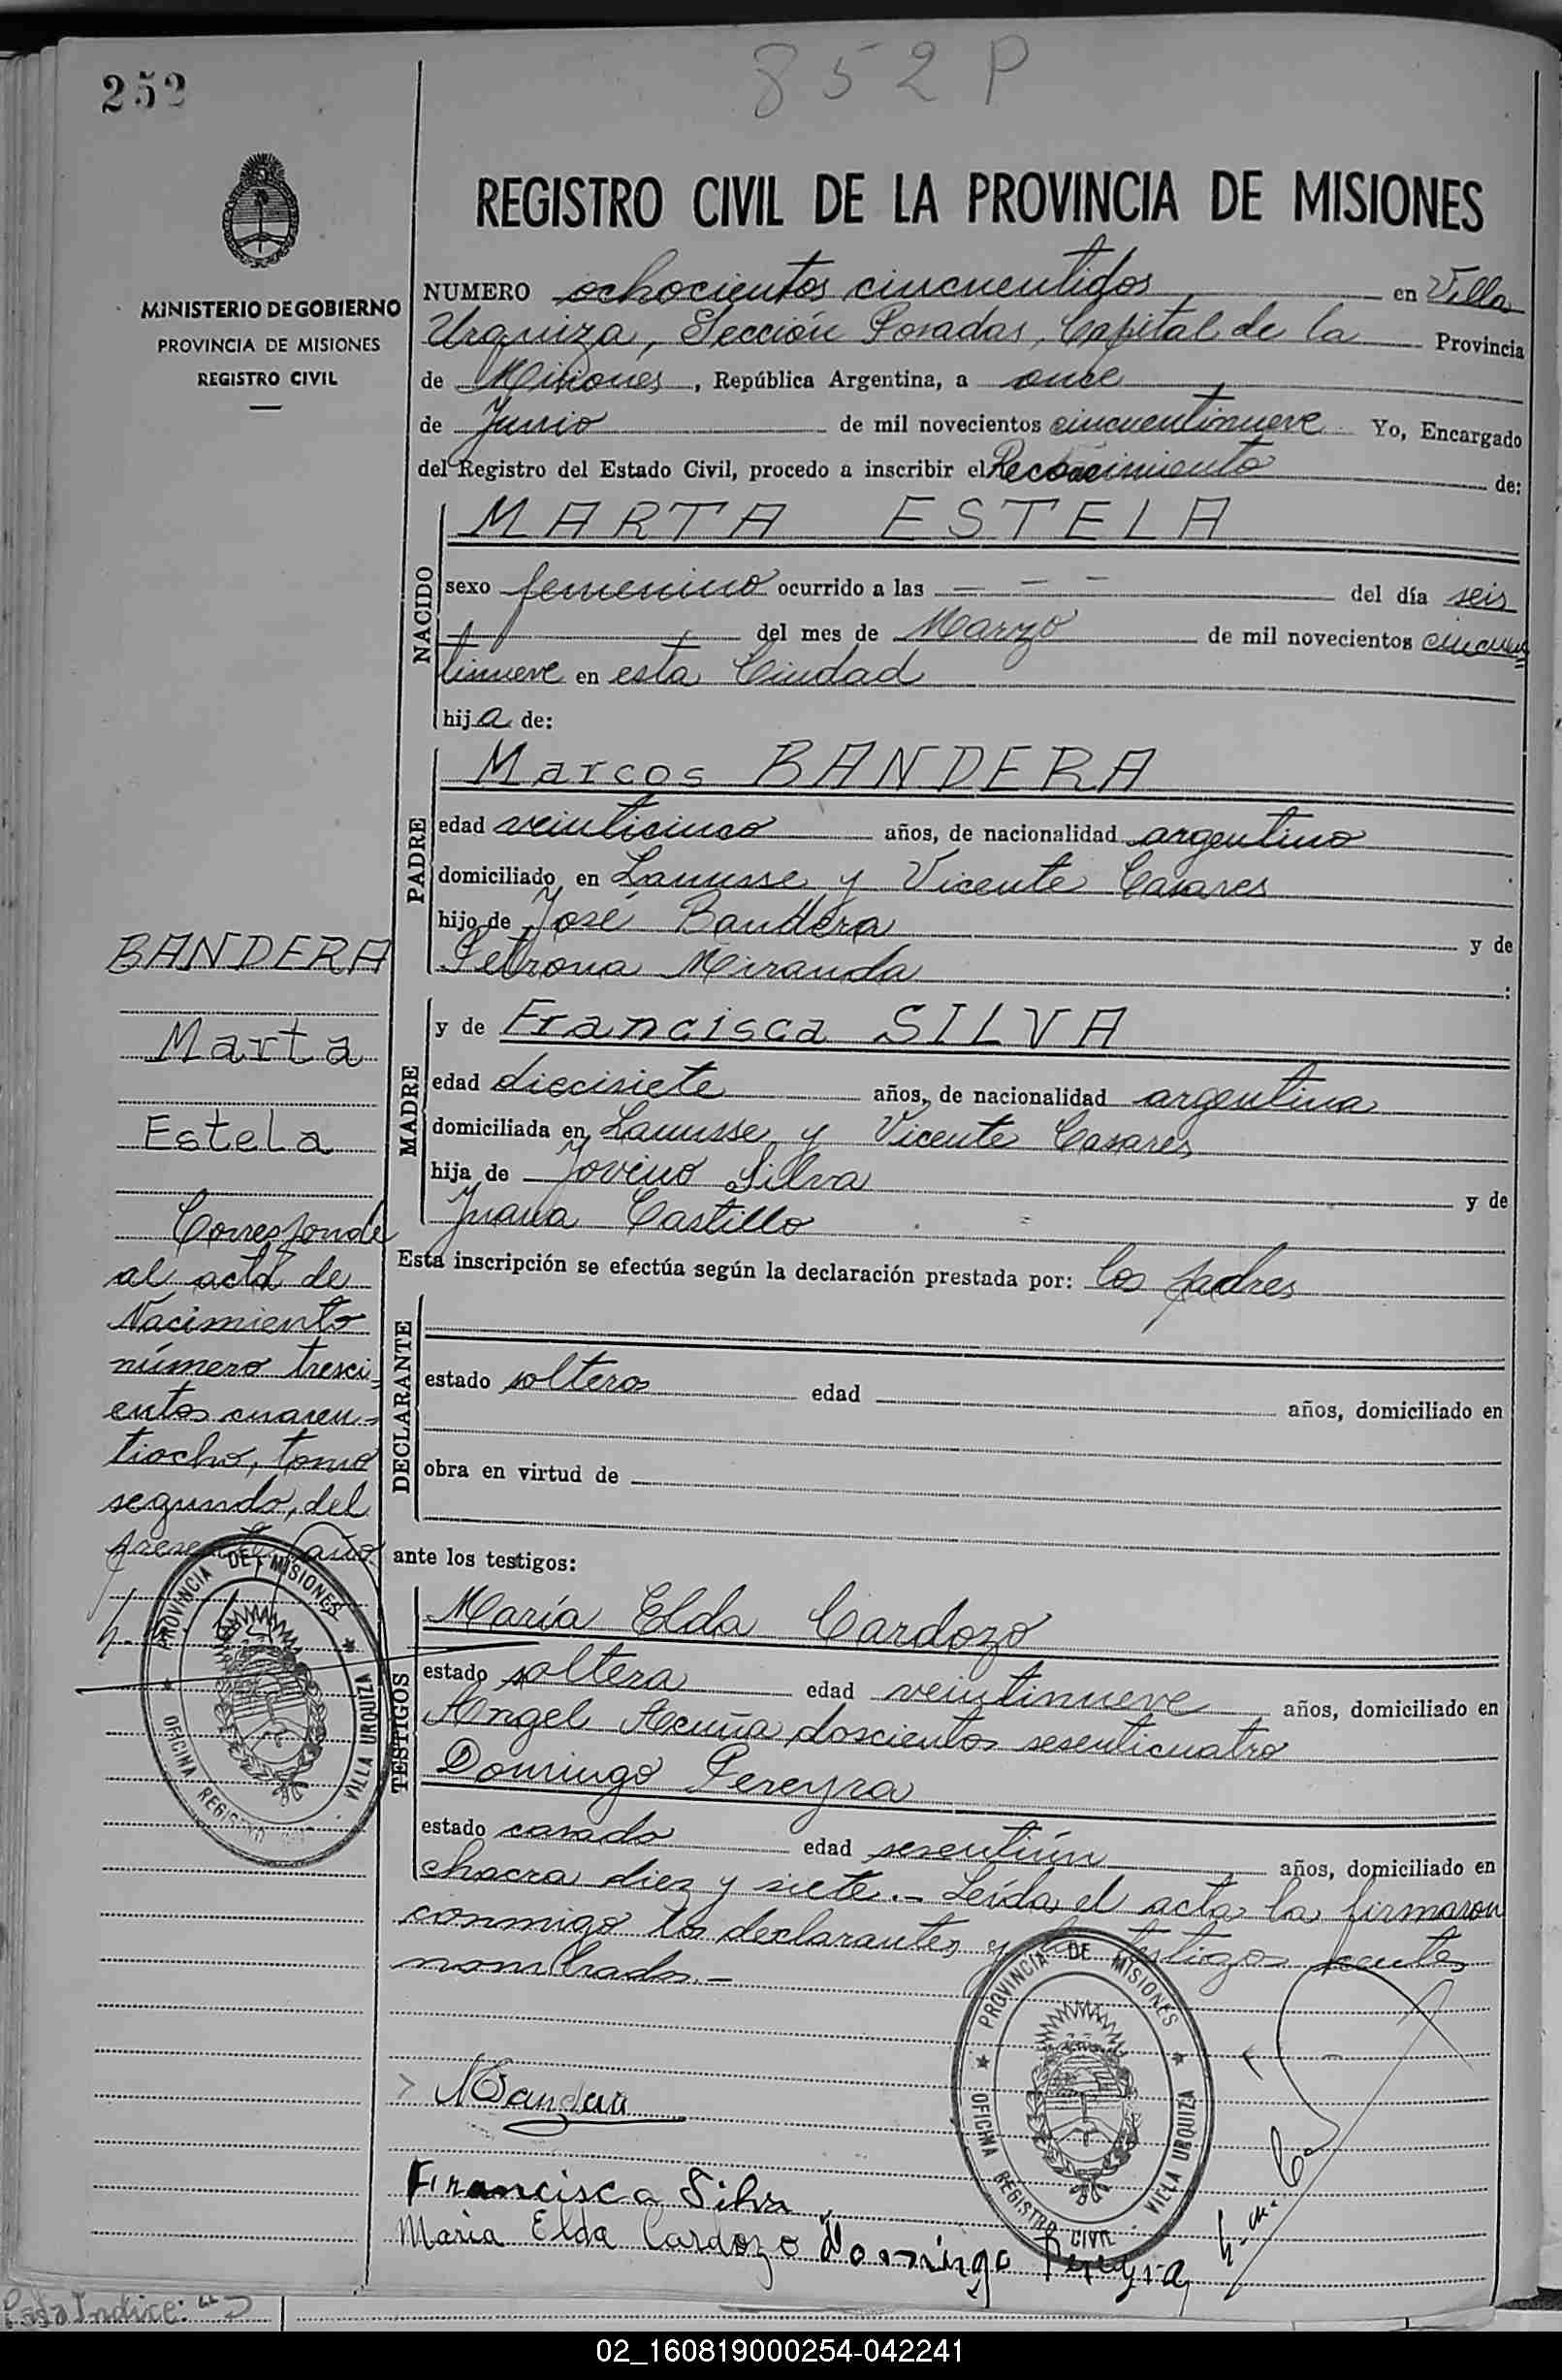 252
852 P
REGISTRO CIVIL DE LA PROVINCIA DE MISIONES
MINISTERIO DE GOBIERNO
PROVINCIA DE MISIONES
REGISTRO CIVIL
NUMERO ochocientos cincuentidos en Villa
Urquiza, Sección Posadas, Capital de la Provincia
de Misiones, República Argentina, a once
de Junio de mil novecientos cincuentinueve Yo, Encargado
del Registro del Estado Civil, procedo a inscribir el Reconocimiento de:
MARTA ESTELA
NACIDO
sexo femenino ocurrido a las — — — del día seis
del mes de Marzo de mil novecientos cincuen=
tinueve en esta Ciudad
hija de:
PADRE
Marcos BANDERA
edad veinticinco años, de nacionalidad argentino
domiciliado en Lanusse y Vicente Casares
hijo de José Bandera y de
Petrona Miranda :
MADRE
y de Francisca SILVA
edad diecisiete años, de nacionalidad argentina
domiciliada en Lanusse y Vicente Casares
hija de Jovino Silva y de
Juana Castillo
Esta inscripción se efectúa según la declaración prestada por: los padres
DECLARANTE
estado solteros edad años, domiciliado en
obra en virtud de
ante los testigos:
TESTIGOS
María Elda Cardozo
estado soltera edad veintinueve años, domiciliado en
Angel Acuña doscientos sesenticuatro
Domingo Pereyra
estado casado edad sesentiún años, domiciliado en
chacra diez y siete.- Leída el acta la firmaron
conmigo los declarantes y los testigos
nombrados.-
BANDERA
Marta
Estela
Corresponde
al acta de
Nacimiento
número tresci-
entos cuaren-
tiocho, tomo
segundo, del
presente año
PROVINCIA DE MISIONES
OFICINA REGISTRO
VILLA URQUIZA
PROVINCIA DE MISIONES
OFICINA REGISTRO CIVIL
VILLA URQUIZA
Francisca Silva
Maria Elda Cardozo Domingo Pereyra
Indice:
02_160819000254-042241